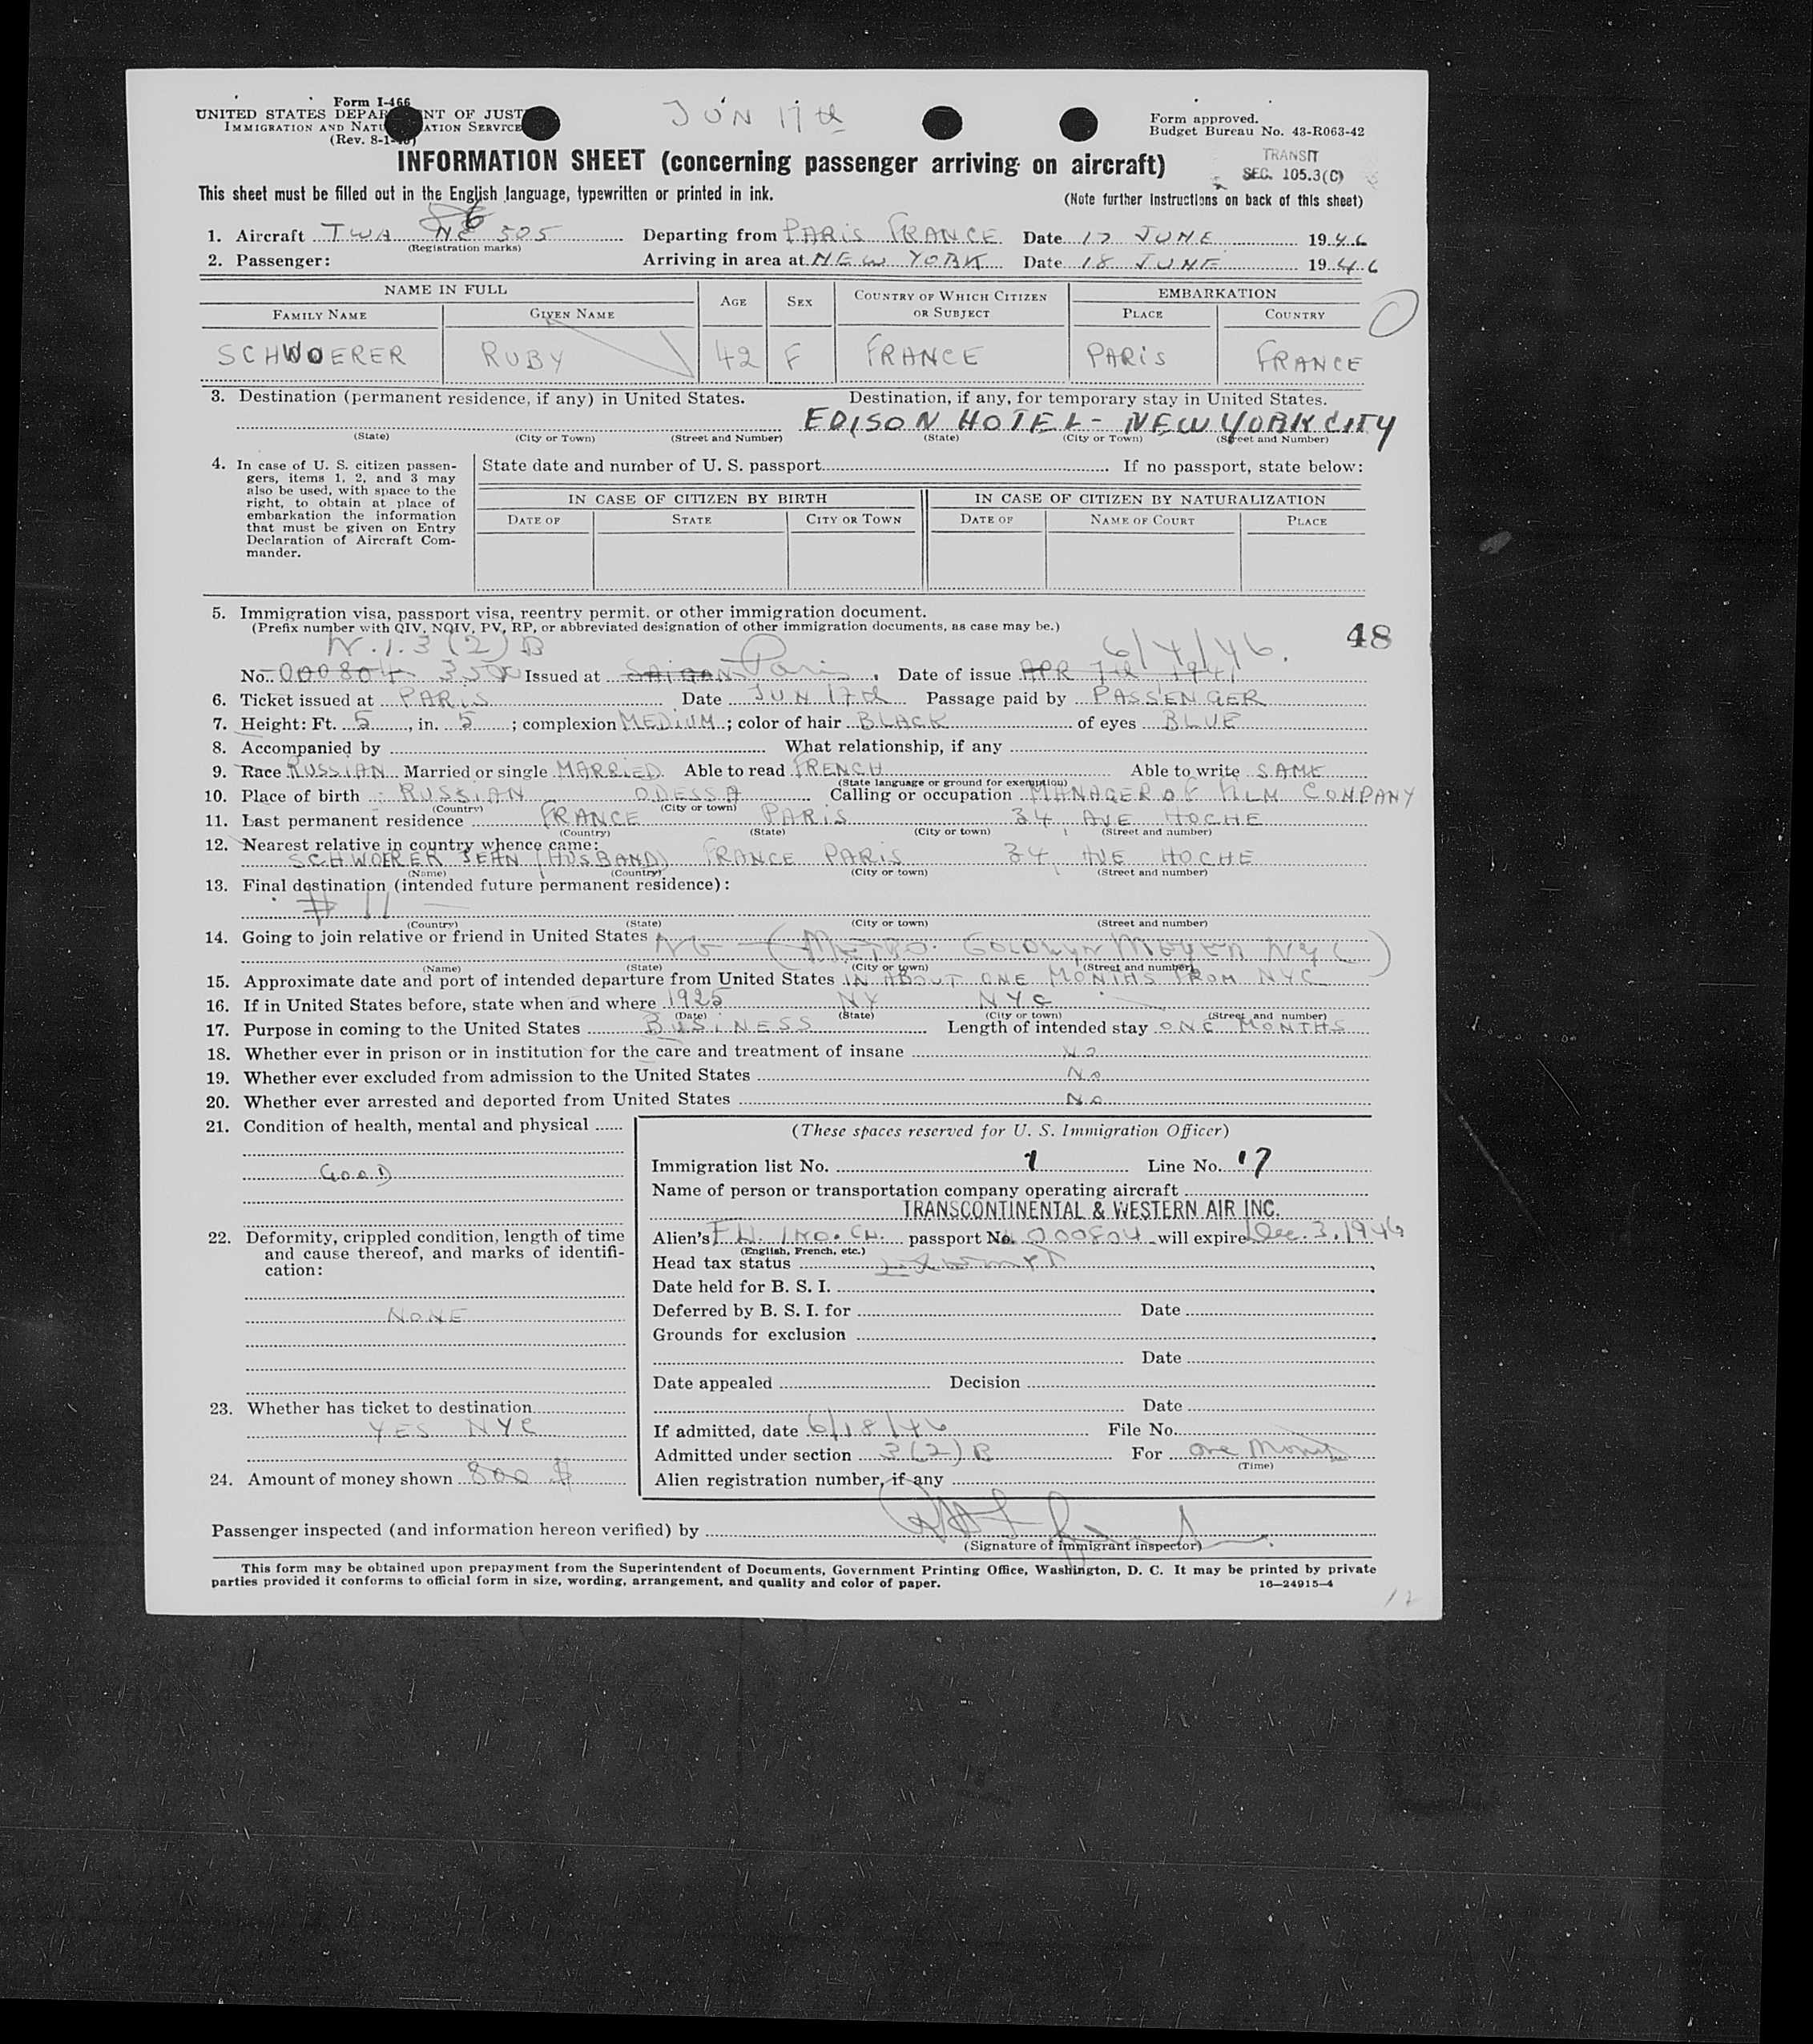 Form I-466
UNITED STATES DEPAR NT OF JUST
IMMIGRATION AND NATU ATION SERVICE
(Rev. 8-1-40)
JUN 17th
Form approved.
Budget Bureau No. 43-R063-42
INFORMATION SHEET (concerning passenger arriving on aircraft)
TRANSIT
SEC. 105.3(C)
This sheet must be filled out in the English language, typewritten or printed in ink.
(Note further instructions on back of this sheet)
6
1. Aircraft TWA NC 505 Departing from PARIS FRANCE Date 17 JUNE 1946
(Registration marks)
2. Passenger: Arriving in area at NEW YORK Date 18 JUNE 1946
NAME IN FULL AGE SEX COUNTRY OF WHICH CITIZEN OR SUBJECT EMBARKATION
FAMILY NAME GIVEN NAME PLACE COUNTRY
SCHWOERER RUBY 42 F FRANCE PARIS FRANCE
3. Destination (permanent residence, if any) in United States. Destination, if any, for temporary stay in United States.
EDISON HOTEL - NEW YORK CITY
(State) (City or Town) (Street and Number) (State) (City or Town) (Street and Number)
4. In case of U. S. citizen passengers, items 1, 2, and 3 may
also be used, with space to the
right, to obtain at place of
embarkation the information
that must be given on Entry
Declaration of Aircraft Commander.
State date and number of U. S. passport If no passport, state below:
IN CASE OF CITIZEN BY BIRTH IN CASE OF CITIZEN BY NATURALIZATION
DATE OF STATE CITY OR TOWN DATE OF NAME OF COURT PLACE
5. Immigration visa, passport visa, reentry permit, or other immigration document.
(Prefix number with QIV, NQIV, PV, RP, or abbreviated designation of other immigration documents, as case may be.)
48
3(2)B 6/4/46.
No. 000804 Issued at SAIGAN Paris. Date of issue APR 7th 194
6. Ticket issued at PARIS Date JUN 17th Passage paid by PASSENGER
7. Height: Ft. 5, in. 5; complexion MEDIUM; color of hair BLACK of eyes BLUE
8. Accompanied by What relationship, if any
9. Race RUSSIAN Married or single MARRIED Able to read FRENCH Able to write SAME
(State language or ground for exemption)
10. Place of birth RUSSIAN ODESSA Calling or occupation MANAGER OF FILM COMPANY
(Country) (City or town)
11. Last permanent residence FRANCE PARIS 34 AVE HOCHE
(Country) (State) (City or town) (Street and number)
12. Nearest relative in country whence came:
SCHWOERER JEAN (HUSBAND) FRANCE PARIS 34 AVE HOCHE
(Name) (Country) (City or town) (Street and number)
13. Final destination (intended future permanent residence):
# 11
(Country) (State) (City or town) (Street and number)
14. Going to join relative or friend in United States No (METRO. GOLDWYN MEYER NYC)
(Name) (State) (City or town) (Street and number)
15. Approximate date and port of intended departure from United States IN ABOUT ONE MONTHS FROM NYC
16. If in United States before, state when and where 1925 NY NYC
(Date) (State) (City or town) (Street and number)
17. Purpose in coming to the United States BUSINESS Length of intended stay ONE MONTHS
18. Whether ever in prison or in institution for the care and treatment of insane No
19. Whether ever excluded from admission to the United States No
20. Whether ever arrested and deported from United States No
21. Condition of health, mental and physical
GOOD
22. Deformity, crippled condition, length of time
and cause thereof, and marks of identification:
NONE
23. Whether has ticket to destination
YES NYC
24. Amount of money shown 800 $
(These spaces reserved for U. S. Immigration Officer)
Immigration list No. 1 Line No. 17
Name of person or transportation company operating aircraft
TRANSCONTINENTAL & WESTERN AIR INC.
Alien's passport No. 000804 will expire Dec. 3, 1946
(English, French, etc.)
Head tax status Exempt
Date held for B. S. I.
Deferred by B. S. I. for Date
Grounds for exclusion
Date
Date appealed Decision
Date
If admitted, date 6/18/46 File No.
Admitted under section 3(2)B For one month
(Time)
Alien registration number, if any
Passenger inspected (and information hereon verified) by
(Signature of immigrant inspector)
This form may be obtained upon prepayment from the Superintendent of Documents, Government Printing Office, Washington, D. C. It may be printed by private
parties provided it conforms to official form in size, wording, arrangement, and quality and color of paper. 16—24915-4
17